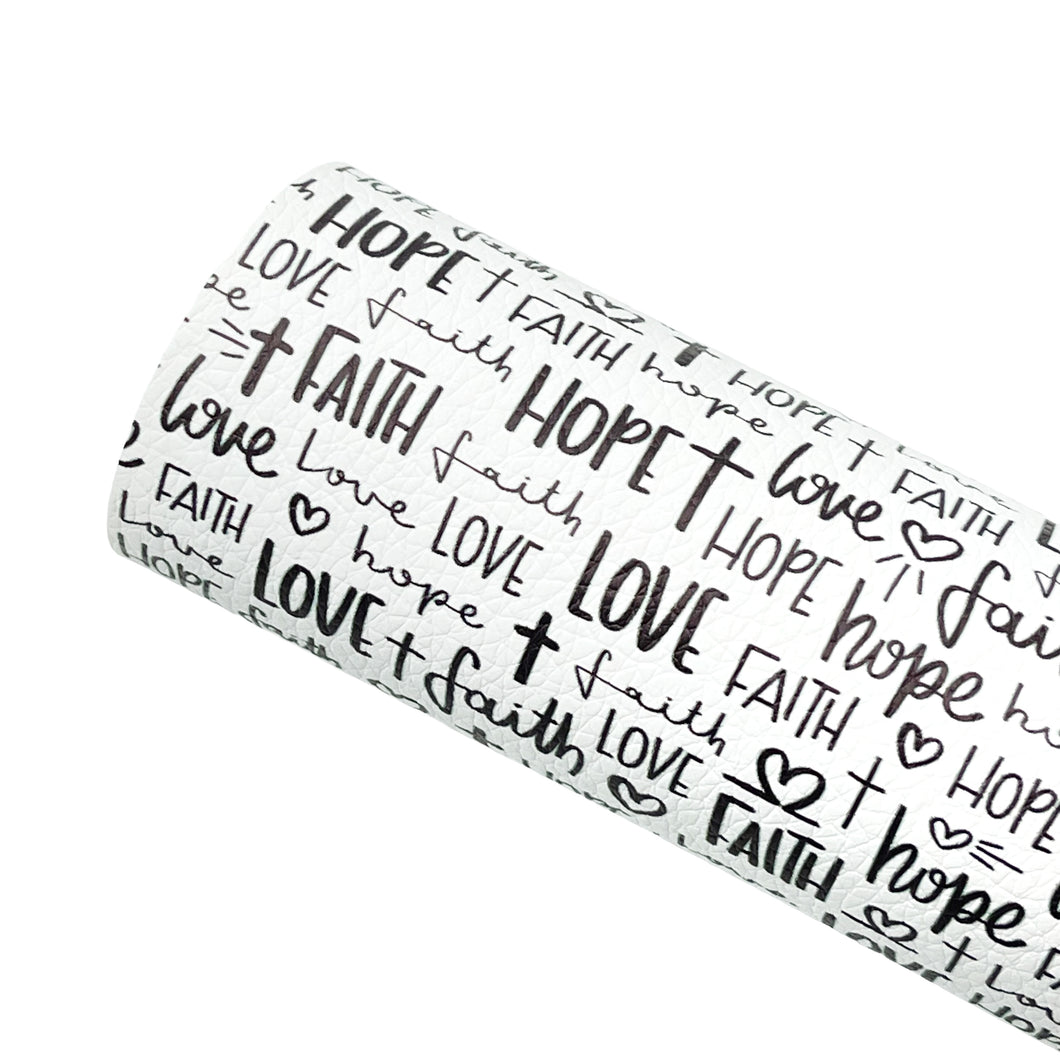 HOPE faith
HOPE FAITH hope HOPE
LOVE faith HOPE love FAITH
FAITH faith HOPE
love love LOVE LOVE hope
FAITH hope FAITH HOPE
love LOVE faith faith LOVE hope
HOPE FAITH
LOVE